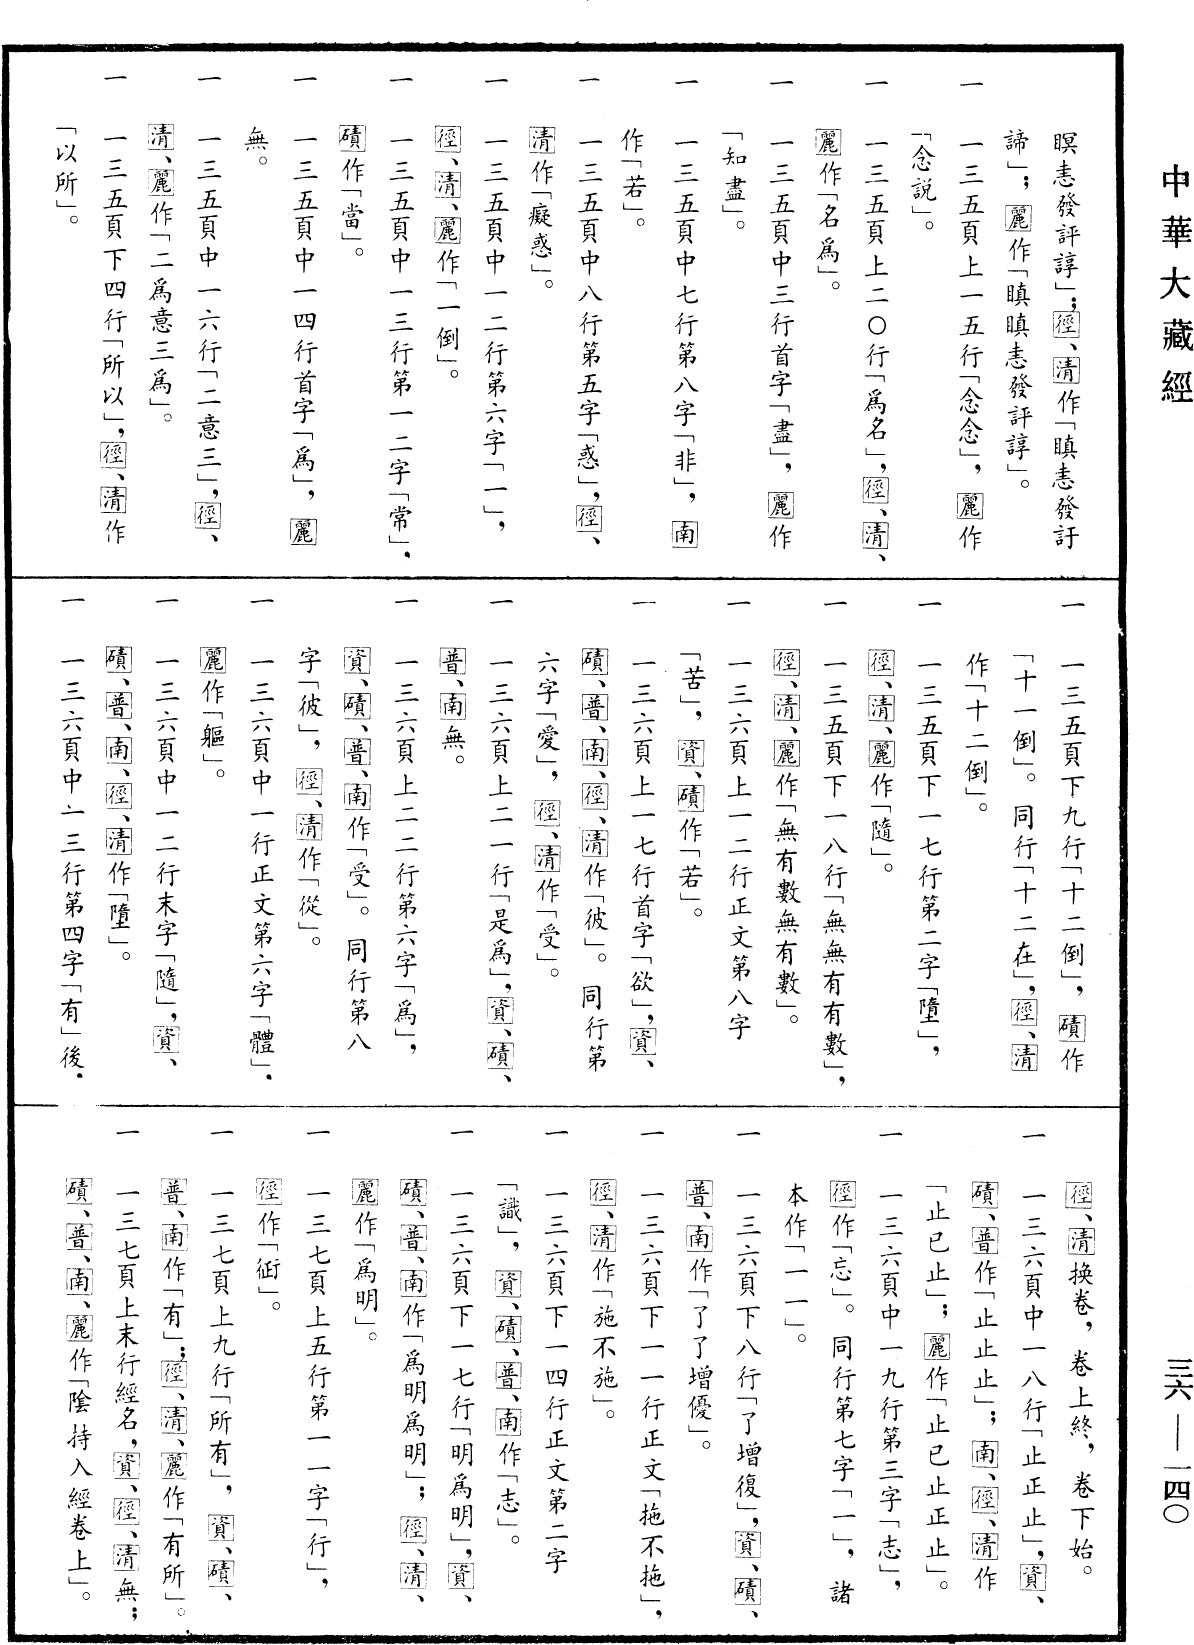 中華大藏經
三六—一四〇
瞑恚發評諄」；徑、清作「瞋恚發訏
諦」；麗作「瞋瞋恚發評諄」。
一　一三五頁上一五行「念念」，麗作
「念説」。
一　一三五頁上二〇行「爲名」，徑、清、
麗作「名爲」。
一　一三五頁中三行首字「盡」，麗作
「知盡」。
一　一三五頁中七行第八字「非」，南
作「若」。
一　一三五頁中八行第五字「惑」，徑、
清作「癡惑」。
一　一三五頁中一二行第六字「一」，
徑、清、麗作「一倒」。
一　一三五頁中一三行第一二字「常」，
磧作「當」。
一　一三五頁中一四行首字「爲」，麗
無。
一　一三五頁中一六行「二意三」，徑、
清、麗作「二爲意三爲」。
一　一三五頁下四行「所以」，徑、清作
「以所」。
一　一三五頁下九行「十二倒」，磧作
「十一倒」。同行「十二在」，徑、清
作「十二倒」。
一　一三五頁下一七行第二字「墮」，
徑、清、麗作「隨」。
一　一三五頁下一八行「無無有有數」，
徑、清、麗作「無有數無有數」。
一　一三六頁上一二行正文第八字
「苦」，資、磧作「若」。
一　一三六頁上一七行首字「欲」，資、
磧、普、南、徑、清作「彼」。同行第
六字「愛」，徑、清作「受」。
一　一三六頁上二一行「是爲」，資、磧、
普、南無。
一　一三六頁上二二行第六字「爲」，
資、磧、普、南作「受」。同行第八
字「彼」，徑、清作「從」。
一　一三六頁中一行正文第六字「體」，
麗作「軀」。
一　一三六頁中一二行末字「隨」，資、
磧、普、南、徑、清作「墮」。
一　一三六頁中一三行第四字「有」後，
徑、清換卷，卷上終，卷下始。
一　一三六頁中一八行「止正止」，資、
磧、普作「止止止」；南、徑、清作
「止已止」；麗作「止已止正止」。
一　一三六頁中一九行第三字「志」，
徑作「忘」。同行第七字「一」，諸
本作「一一」。
一　一三六頁下八行「了增復」，資、磧、
普、南作「了了增優」。
一　一三六頁下一一行正文「拖不拖」，
徑、清作「施不施」。
一　一三六頁下一四行正文第二字
「識」，資、磧、普、南作「志」。
一　一三六頁下一七行「明爲明」，資、
磧、普、南作「爲明爲明」；徑、清、
麗作「爲明」。
一　一三七頁上五行第一一字「行」，
徑作「㣔」。
一　一三七頁上九行「所有」，資、磧、
普、南作「有」；徑、清、麗作「有所」。
一　一三七頁上末行經名，資、徑、清無；
磧、普、南、麗作「陰持入經卷上」。